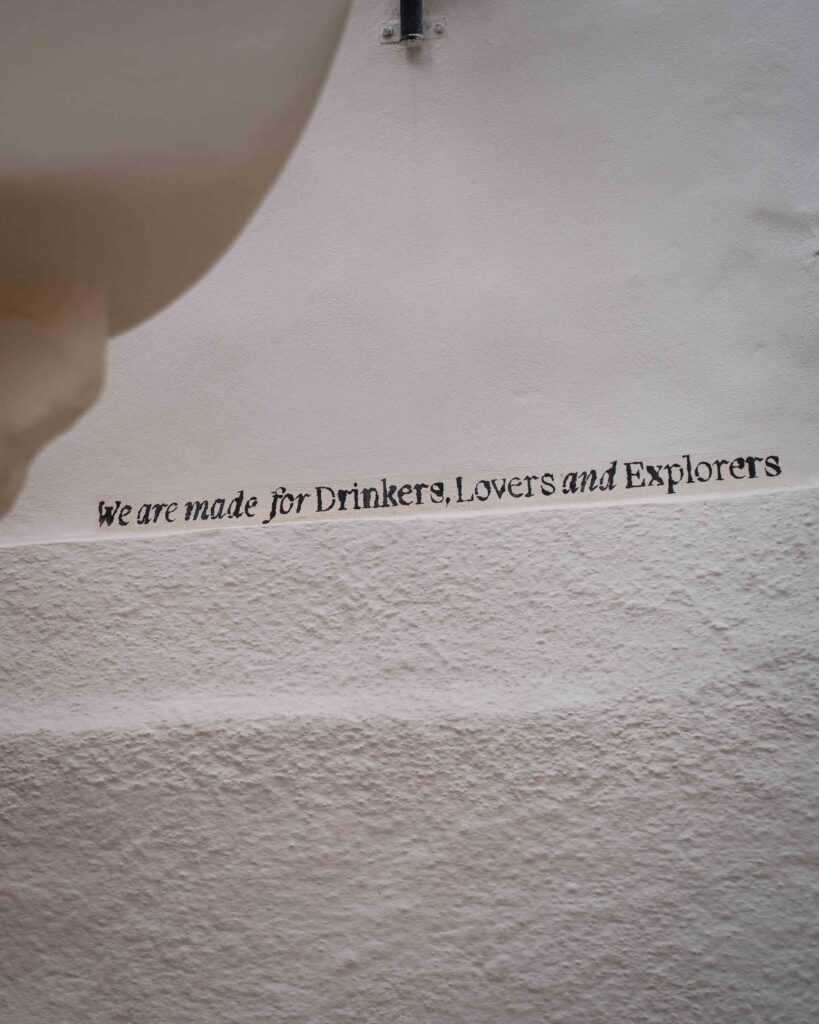 We are made for Drinkers, Lovers and Explorers